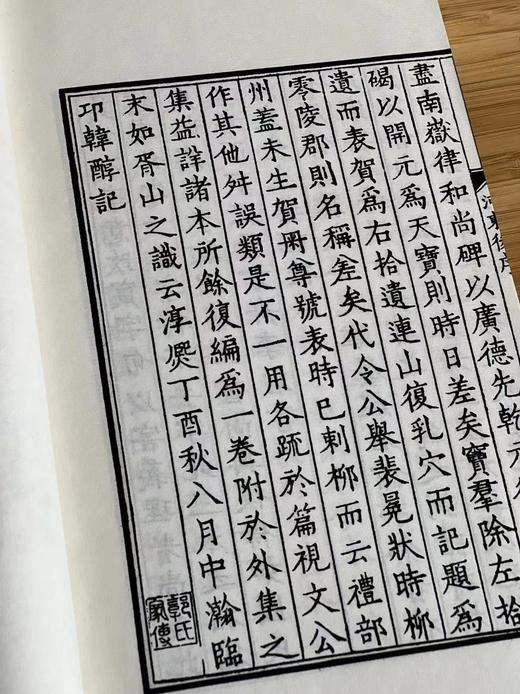 河東後序
盡南嶽律和尚碑以廣德先乾元
碣以開元爲天寶則時日差矣竇羣除左拾
遺而表賀爲右拾遺連山復乳穴而記題爲
零陵郡則名稱差矣代令公舉裴冕狀時柳
州蓋未生賀冊尊號表時已刺柳而云禮部
作其他舛誤類是不一用各疏於篇視文公
集益詳諸本所餘復編爲一卷附於外集之
末如胥山之識云淳熙丁酉秋八月中瀚臨
邛韓醇記
郭氏